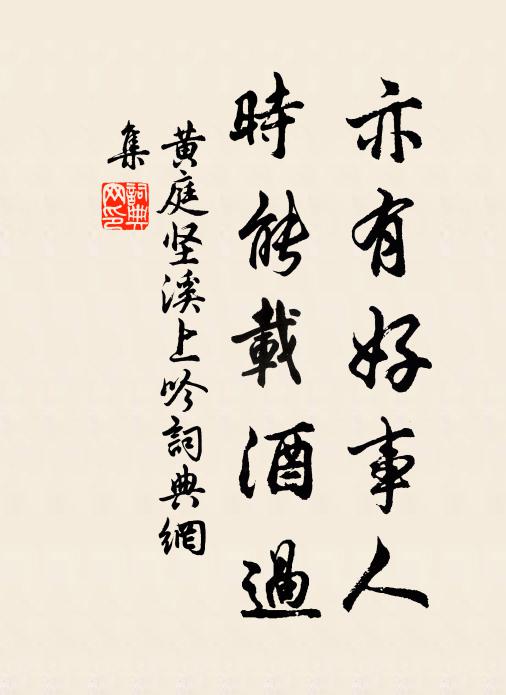 亦有好事人
時能載酒過
黄庭坚溪上吟詞典網
集
詞典網印